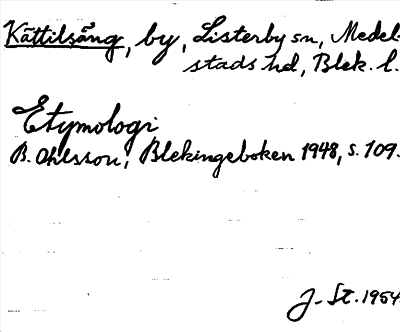 Kättilsång, by, Listerby sn, Medel-
stads hd, Blek. l.
Etymologi
B. Ohlsson, Blekingeboken 1948, s. 109.
J. St. 1954